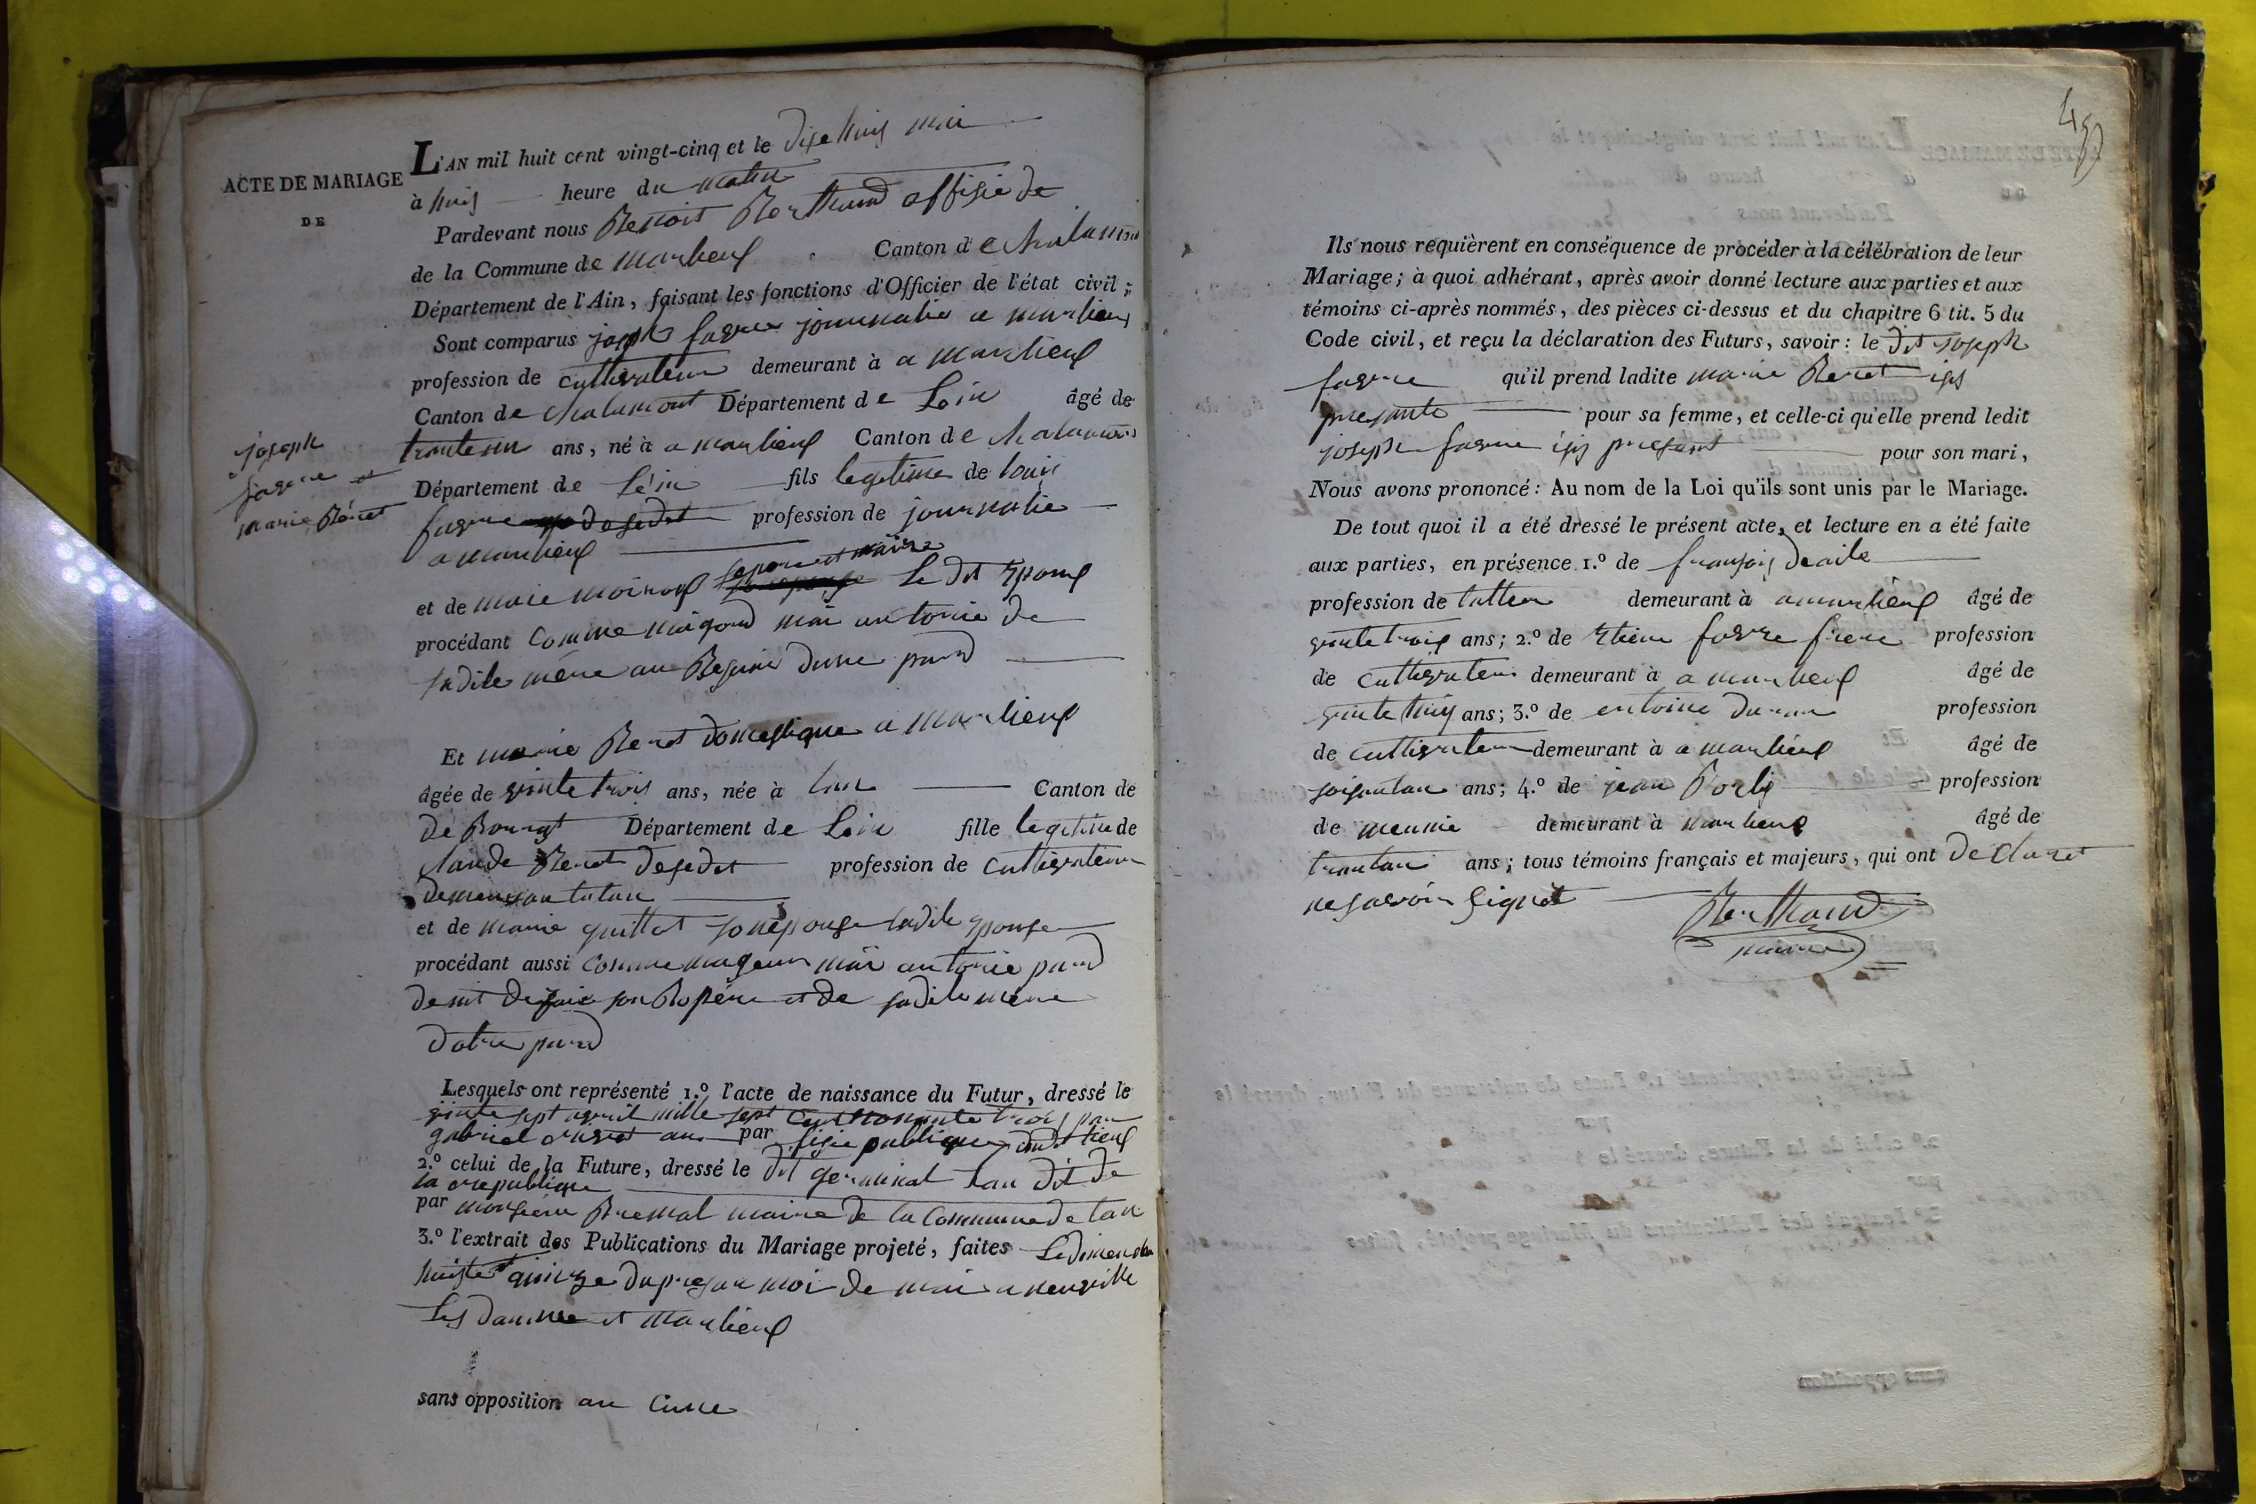 L'AN mil huit cent vingt-cinq et le dixe huis mai
ACTE DE MARIAGE
DE
à huis heure du matin
Pardevant nous Benoit Berthaud offisié de
de la Commune de Marlieux Canton de Chalamon
Département de l'Ain, faisant les fonctions d'Officier de l'état civil;
Sont comparus joseph favre journalié a marlieux
profession de cultivateur demeurant à a marlieux
Canton de Chalamont Département de Lein âgé de
joseph
favre et
marie Beret
trante un ans, né à a marlieux Canton de Chalamon
Département de Lein fils legitime de louis
favre profession de journalié
a marlieux
et de marie moiroux le dit Epoux
procédant comme majeur mai antorié de
sadite mère au Besoin dune pard
Et marie Beret domestique a marlieux
âgée de vinte trois ans, née à lan Canton de
de Bourgt Département de Lein fille legitime de
claude Beret desedet profession de cultivateur
demeurau a lan
et de marie guillet son épouse ladite épouse
procédant aussi comme mageur mai antorié pard
son Bopère et de sadite mère
dotre pard
Lesquels ont représenté 1.º l'acte de naissance du Futur, dressé le
vinte sept avril mille sept cent nonante trois par
gabriel par fisié publique dudit lieux
2.º celui de la Future, dressé le dit germinal lan dit de
la republique
par monsieur Bremal maire de la Commune de lan
3.º l'extrait des Publications du Mariage projeté, faites Le dimanche
huist et quinze du presan moi de mai a neuville
les damme et marlieux
sans opposition au cune
Ils nous requièrent en conséquence de procéder à la célébration de leur
Mariage; à quoi adhérant, après avoir donné lecture aux parties et aux
témoins ci-après nommés, des pièces ci-dessus et du chapitre 6 tit. 5 du
Code civil, et reçu la déclaration des Futurs, savoir: le dit joseph
favre qu'il prend ladite marie Beret isis
presante pour sa femme, et celle-ci qu'elle prend ledit
joseph favre isis presant pour son mari,
Nous avons prononcé: Au nom de la Loi qu'ils sont unis par le Mariage.
De tout quoi il a été dressé le présent acte, et lecture en a été faite
aux parties, en présence 1.º de fransois
profession de tallieur demeurant à a marlieux âgé de
vinte trois ans; 2.º de Etiene favre frere profession
de cultivateur demeurant à a marlieux âgé de
vinte huis ans; 3.º de entoine profession
de cultivateur demeurant à a marlieux âgé de
soisantan ans; 4.º de jean profession
de meunié demeurant à marlieux âgé de
trantan ans; tous témoins français et majeurs, qui ont declaret
ne savoir signét
Berthaud
maire